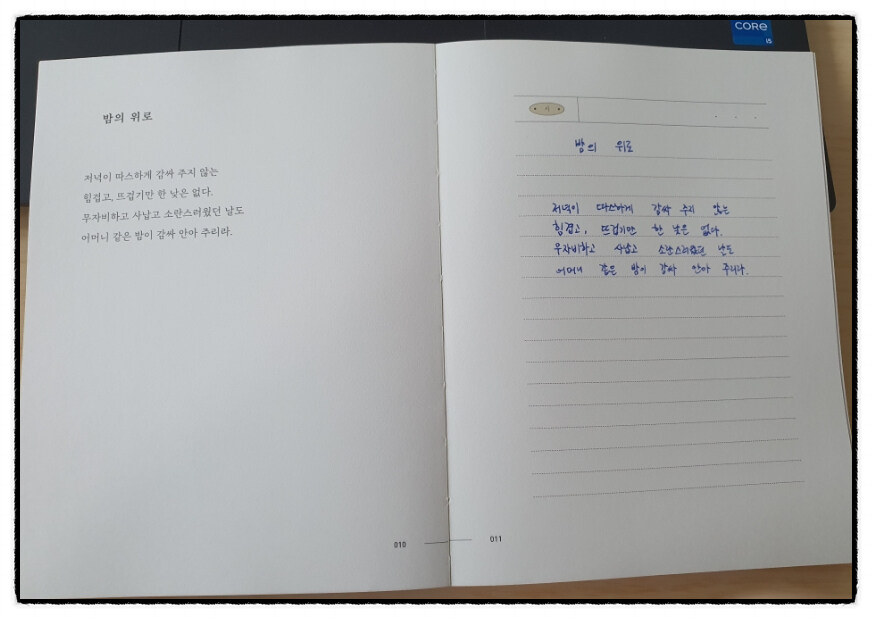 CORE
i5
밤의 위로
저녁이 따스하게 감싸 주지 않는
힘겹고, 뜨겁기만 한 낮은 없다.
무자비하고 사납고 소란스러웠던 날도
어머니 같은 밤이 감싸 안아 주리라.
010
밤의 위로
저녁이 따스하게 감싸 주지 않는
힘겹고, 뜨겁기만 한 낮은 없다.
무자비하고 사납고 소란스러웠던 날도
어머니 같은 밤이 감싸 안아 주리라.
011